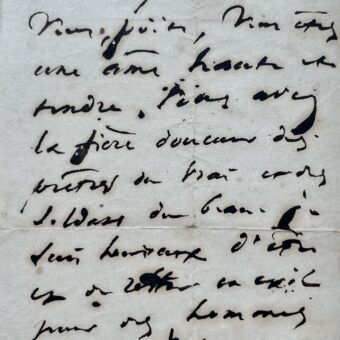 Vous, poète, vous êtes
une âme haute et
tendre. Vous avez
la fière douceur des
prêtres du vrai et des
soldats du beau. Je
suis heureux d'être
et de rester en exil
pour des hommes